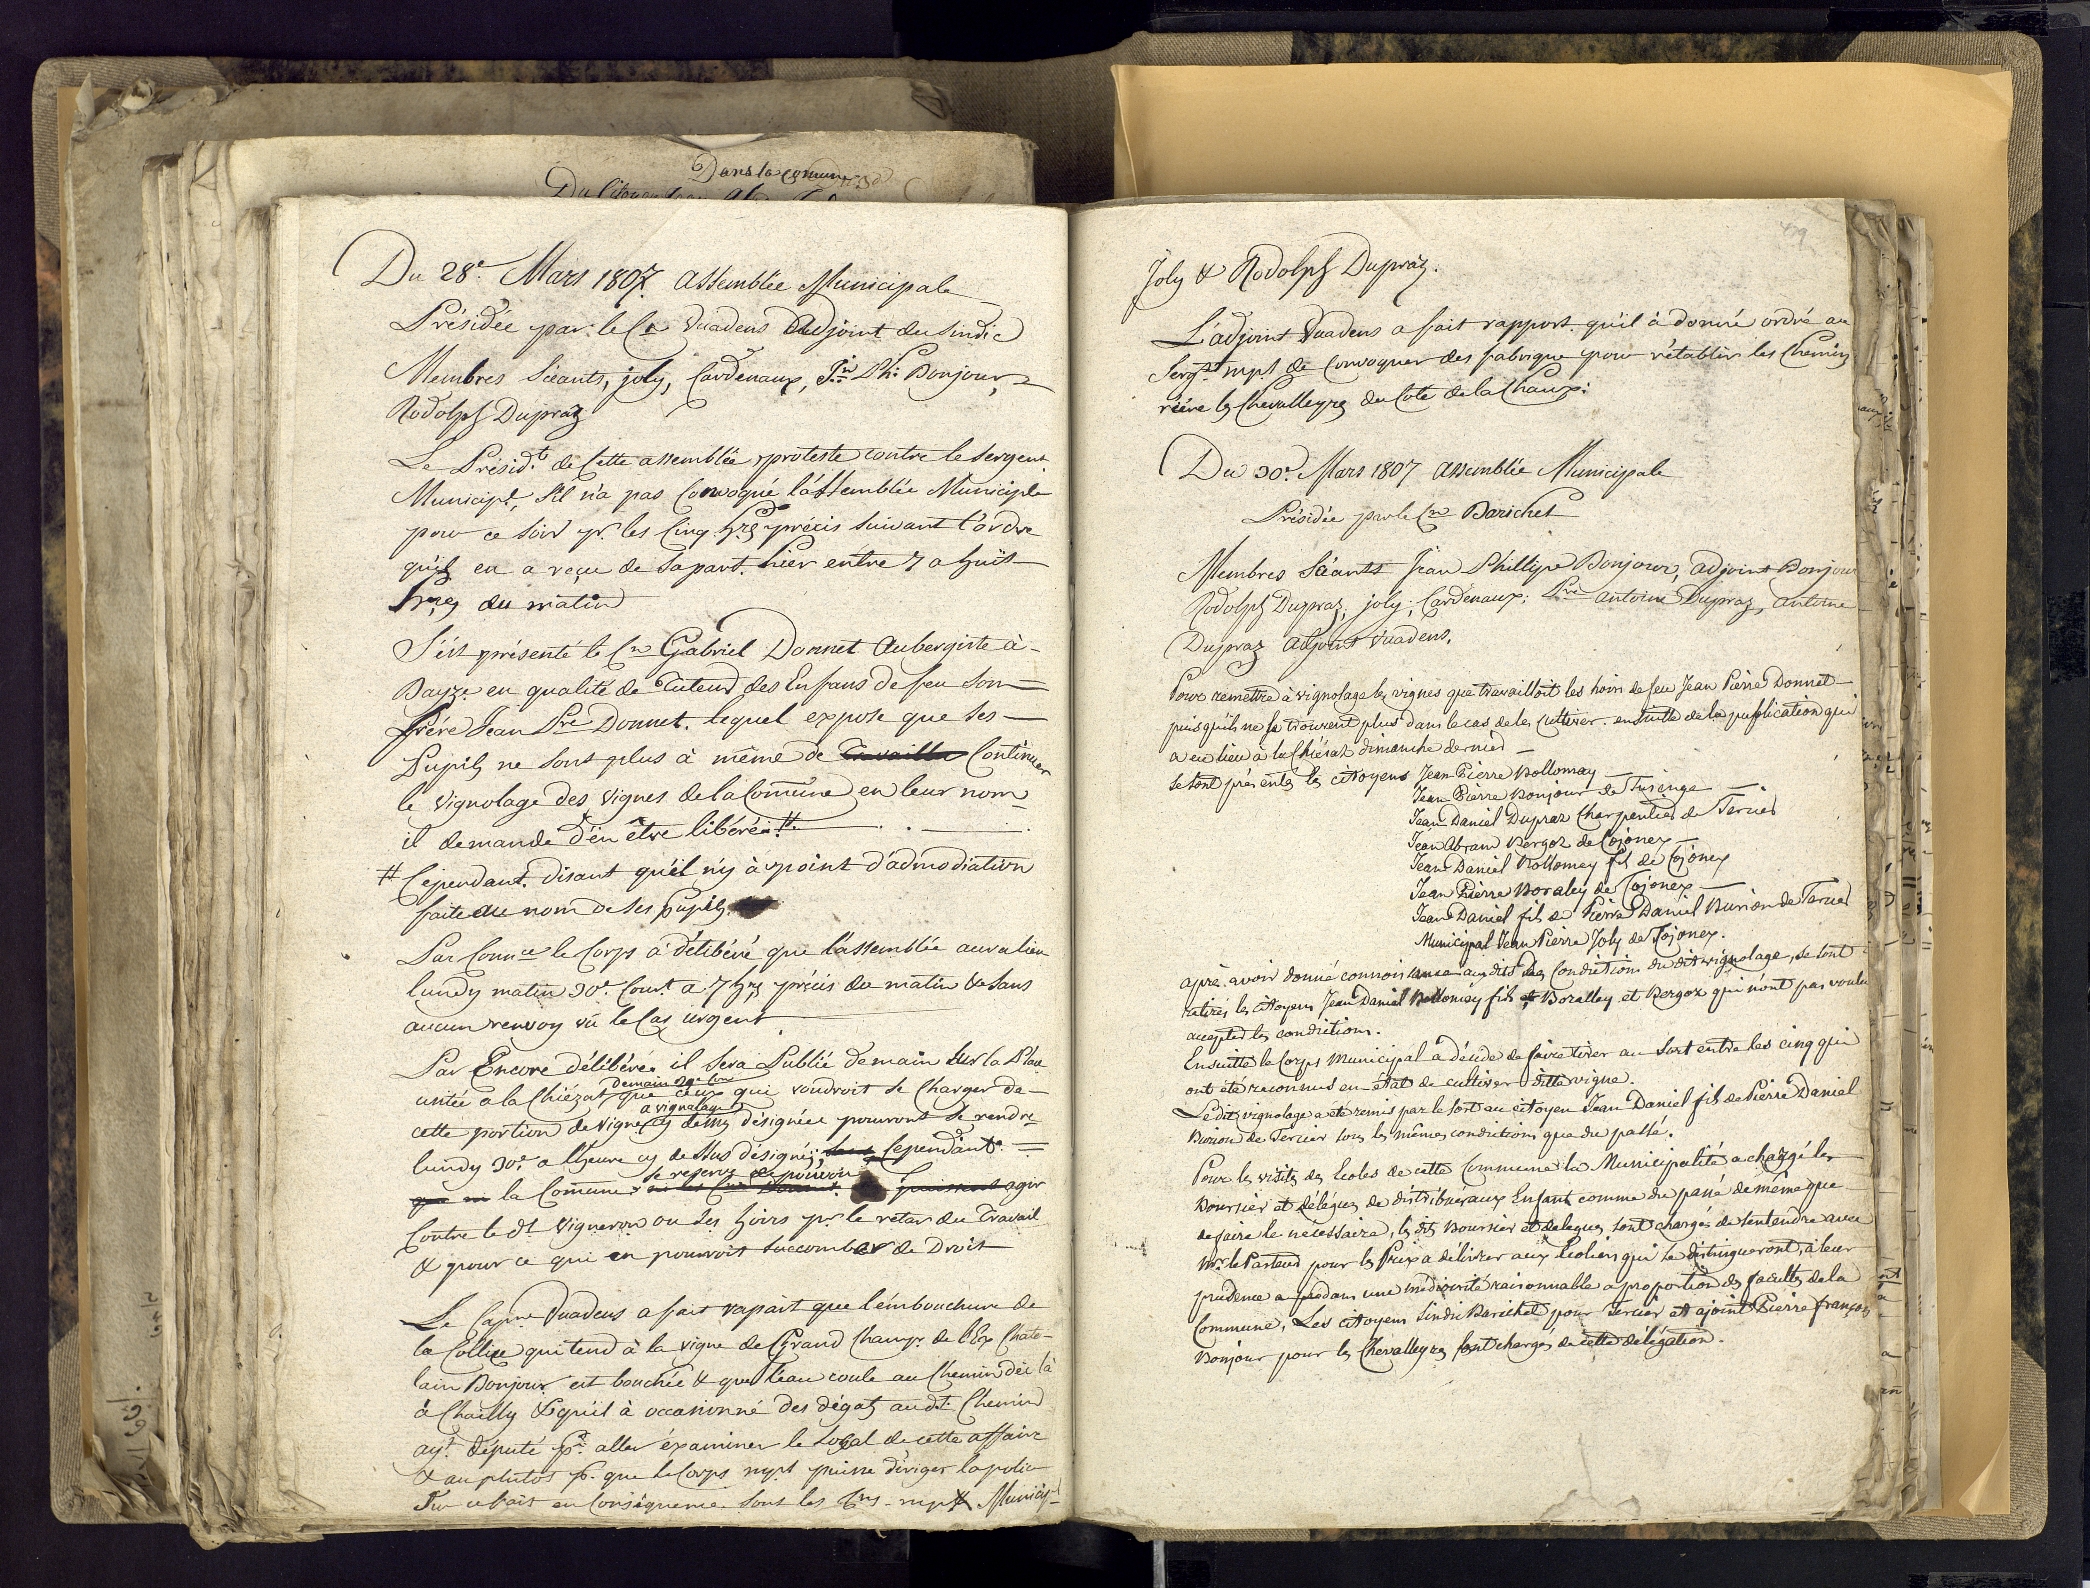 Dans la comune
Du 28e. Mars 1807. Assemblée Municipale
Présidée par le Cn Vuadens Adjoint du Sindic
Membres Séeants, joly, Cardenaux, Jn. Ph: Bonjour,
Rodolph Dupraz
Le Présidt. de Cette assemblée proteste contre le Sergent
Municipl. s'il n'a pas Convoqué l'assemblée Municiple
pour ce soir pr. les Cinq hres précis suivant l'ordre
qu'il en a reçu de sa part. hier entre 7 a huit
hres du matin
S'est présenté le Cn Gabriel Donnet Aubergiste à
en qualité de Tuteur des Enfans de feu son
frère Jean Pre Donnet. lequel expose que ses
Pupils ne sont plus à même de travailler Continuer
le Vignolage des Vignes de la Comune en leur nom
il demande d'en être libéré. #.
# Cependant. disant qu'il n'y à point d'admodiation
faite au nom de ses pupils.
Par Connce le Corps a délibéré que l'assemblée aura lieu
lundy matin 30e. Court. a 7 hres précis du matin & sans
aucun renvoy vû le Cas urgent
Par Encore délibéré. il sera Publié demain sur la Place
usitée a la Chiésaz demain 29e Court que ceux qui voudroit se Charger de
cette portion de vigne a vignolage cy dessus désignée pourront se rendre
lundy 30e. a l'heure cy dessus désignée, sans Cependant.
que la Comune se reserve de pouvoir puissent agir
Contre le dt Vigneron ou ses hoirs pr. le retar du Travail
& pour ce qui en pourroit succomber de Droit
Le Capne Vuadens a fait rapart que l'embouchure de
la Collice qui tend à la vigne de Grand Champ. de l'Ex Chate-
lain Bonjour est bouchée & que l'eau coule au Chemin dès là
à Chailly & qu'il à occasionné des dégats audt. Chemin
ayt. député pr. aller éxaminer le Local de cette affaire
& au plutôt pr. que le Corps mpl puisse diriger la police
Sur ce fait en Conséquence. sont les Cns - mpx Municipl
Joly & Rodolph Dupraz.
L'adjoint Vuadens a fait rapport qu'il à donné ordre au
Sergt. mpl de Convoquer des fabrique pour rétablir les Chemins
rière les Chevalleyres du Cote de la Chaux.
Du 30e. Mars 1807 assemblée Municipale
Présidée par le Cn Barichet
Membres Séants Jean Phillipe Bonjour, adjoint Bonjour
Rodolph Dupraz, joly, Cardenaux; Pre antoine Dupraz, antoine
Dupraz adjoint Vuadens.
Pour remettre à vignolage les vignes que travailloit les hoirs de feu Jean Pierre Donnet
puisqu'ils ne se trouvent plus dans le cas de les cultiver. en suitte de la publication qui
a eu lieu à la Chiésaz dimanche dernier
se sont présentés les citoyens Jean Pierre Bollomay
Jean Pierre Bonjour de
Jean Daniel Dupraz Charpentier de Tercier
Jean Abram Bergoz de Cojonex
Jean Daniel Bollomey fils de Cojonex
Jean Pierre Boraley de Cojonex
Jean Daniel fils de Pierre Daniel Burion de Tercier
Municipal Jean Pierre Joly de Cojonex.
après avoir donné connoissance aux dits des Condictions du dit vignolage, se sont
retirés les citoyens Jean Daniel Bollomey fils et Boralley et Bergoz qui n'ont pas voulu
accepter les condictions.
Ensuitte le Corps Municipal a décidé de faire tirer au sort entre les cinq qui
ont été reconnus en état de cultiver ditte vigne.
Le dit vignolage a été remis par le sort au citoyen Jean Daniel fils de Pierre Daniel
Burion de Tercier sous les mêmes condictions que du passé.
Pour les visites des Ecoles de cette Commune la Municipalité a chargé les
Boursier et délégués de distribuer aux Enfant comme du passé de même que
de faire le nécessaire, les dits Boursier et delegués sont chargés de s'entendre avec
Mr. le Pasteur pour les Prix a délivrer aux Ecoliers qui se distingueront, à leur
prudence a dans une médiocrité raisonnable a proportion des facultés de la
Commune, Les citoyens Sindic Barichet pour Tercier et ajoint Pierre françois
Bonjour pour les Chevalleyres sont chargés de cette délégation.